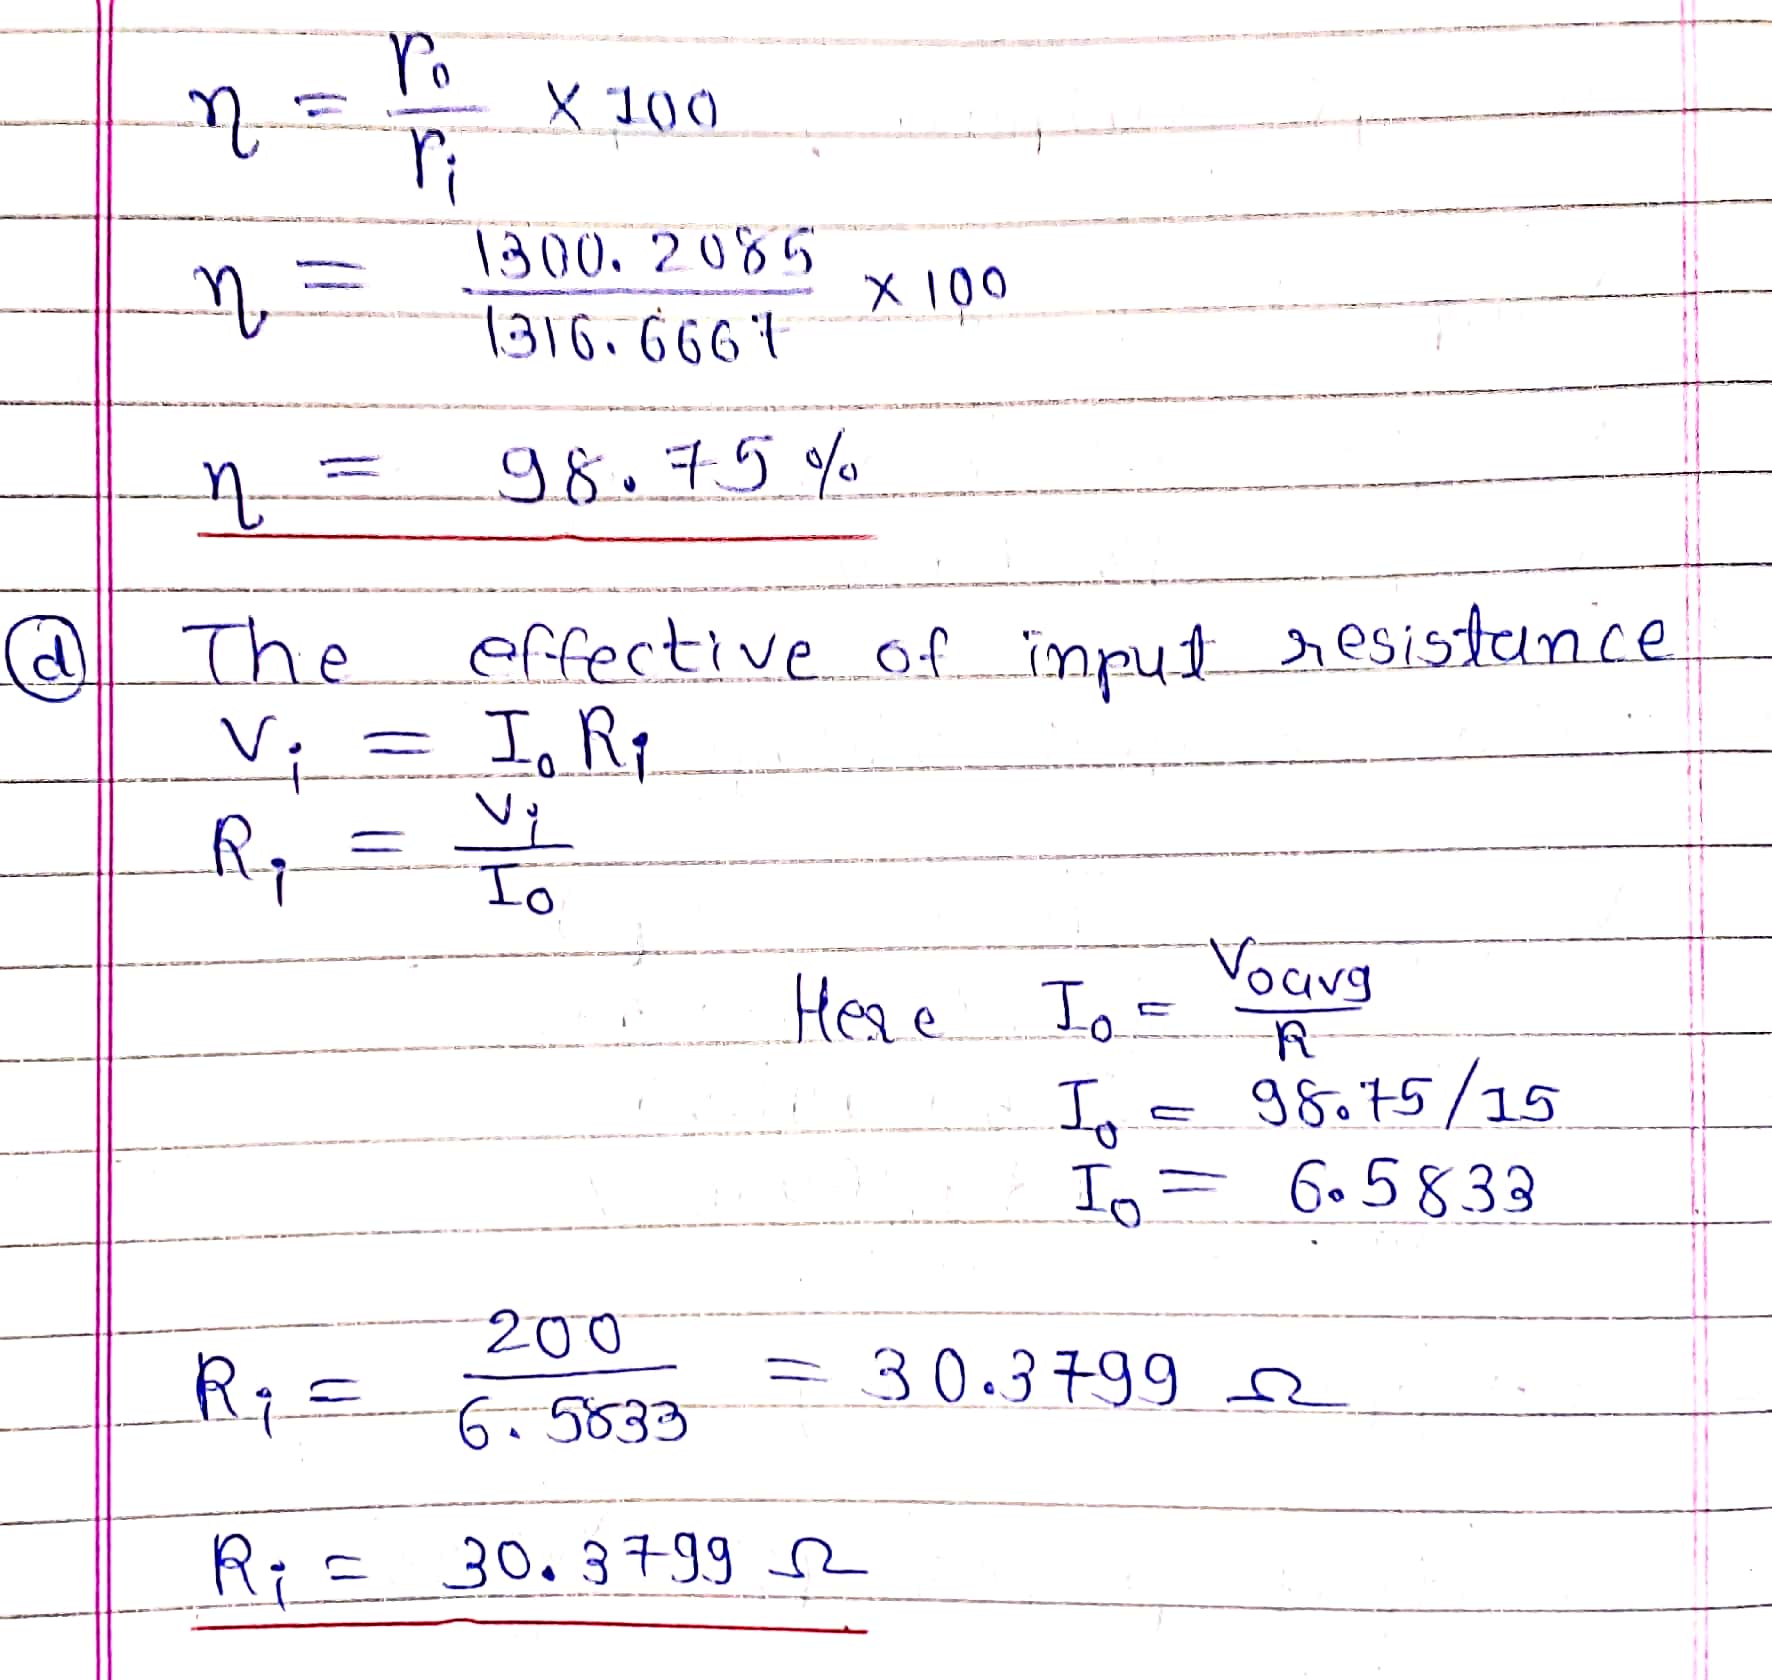 η = r₀/rᵢ × 100
η = 1300.2085/1316.6667 × 100
η = 98.75 %
ⓓ The effective of input resistance
Vᵢ = I₀ Rᵢ
Rᵢ = Vᵢ/I₀
Here I₀ = Voavg/R
I₀ = 98.75/15
I₀ = 6.5833
Rᵢ = 200/6.5833 = 30.3799 Ω
Rᵢ = 30.3799 Ω